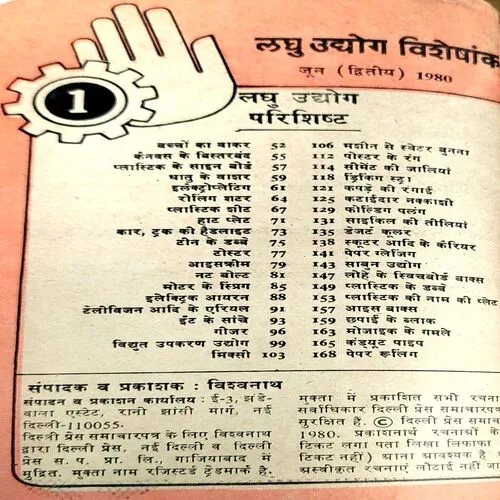 लघु उद्योग विशेषांक
जून (द्वितीय) 1980
1
लघु उद्योग
परिशिष्ट
बच्चों का वाकर 52
कैनवस के बिस्तरबंद 55
प्लास्टिक के साइन बोर्ड 57
धातु के वाशर 59
इलेक्ट्रोप्लेटिंग 61
रोलिंग शटर 64
प्लास्टिक शीट 67
हाट प्लेट 71
कार, ट्रक की हैडलाइट 73
टीन के डब्बे 75
टोस्टर 77
आइसक्रीम 79
नट बोल्ट 81
मोटर के स्प्रिंग 85
इलेक्ट्रिक आयरन 88
टेलीविजन आदि के एरियल 91
ईंट के सांचे 93
गीजर 96
विद्युत उपकरण उद्योग 99
मिक्सी 103
106 मशीन से स्वेटर बुनना
112 पोस्टर के रंग
114 सीमेंट की जालियां
118 ड्रिंकिंग स्ट्रा
121 कपड़े की रंगाई
125 कटाईदार नक्काशी
129 फोल्डिंग पलंग
131 साइकिल की तीलियां
135 डेजर्ट कूलर
138 स्कूटर आदि के कैरियर
141 पेपर ग्लेजिंग
143 साबुन उद्योग
147 लोहे के स्विचबोर्ड बाक्स
149 प्लास्टिक के डब्बे
153 प्लास्टिक की नाम की प्लेट
157 आइस बाक्स
159 छपाई के ब्लाक
163 मोजाइक के गमले
165 कंड्यूट पाइप
168 पेपर रूलिंग
संपादक व प्रकाशक : विश्वनाथ
संपादन व प्रकाशन कार्यालय : ई-3, झंडे-
वाला एस्टेट, रानी झांसी मार्ग, नई
दिल्ली-110055.
दिल्ली प्रेस समाचारपत्र के लिए विश्वनाथ
द्वारा दिल्ली प्रेस, नई दिल्ली व दिल्ली
प्रेस स. प. प्रा. लि., गाजियाबाद में
मुद्रित. मुक्ता नाम रजिस्टर्ड ट्रेडमार्क है.
मुक्ता में प्रकाशित सभी रचना
सर्वाधिकार दिल्ली प्रेस समाचारप
सुरक्षित हैं. © दिल्ली प्रेस समा
1980. प्रकाशनार्थ रचनाओं के
टिकट लगा पता लिखा लिफाफा
टिकट नहीं) आना आवश्यक है
अस्वीकृत रचनाएं लौटाई नहीं जा